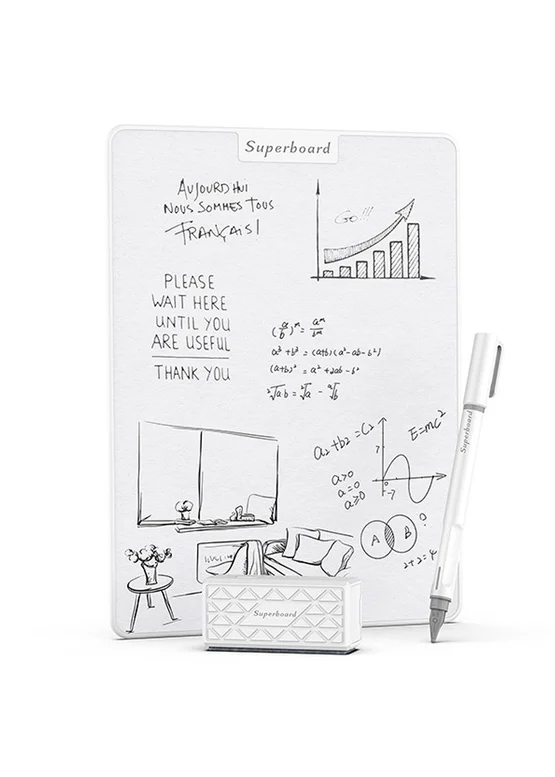 Superboard
AUJOURD HUI
NOUS SOMMES TOUS
FRANÇAIS!
Go!!!
PLEASE
WAIT HERE
UNTIL YOU
ARE USEFUL
THANK YOU
(a/b)^m = a^m/b^m
a³+b³ = (a+b)(a²-ab-b²)
(a+b)² = a²+2ab-b²
²√ab = ²√a - ⁿ√b
a₂+b₂=C₂
E=mc²
7
a>0
a=0
a≥0
0
-7
A
B
?
2+2=4
Superboard
Superboard